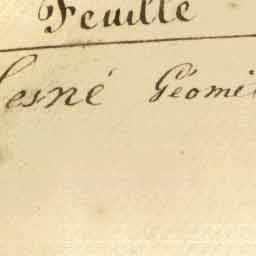 Feuille
Lesné Géomé